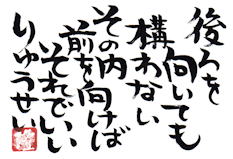 後ろを
向いても
構わない
その内
前を向けば
それでいい
りゅうせい